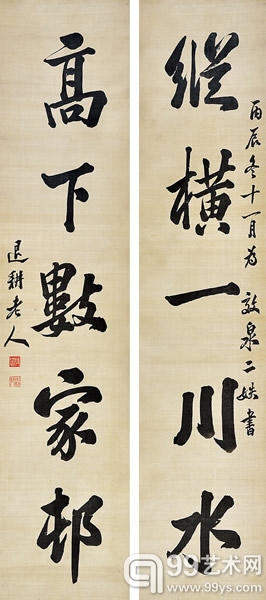 丙辰冬十一月为
敦泉二姪書
縱橫一川水
高下數家邨
退耕老人
99艺术网
www.99ys.com